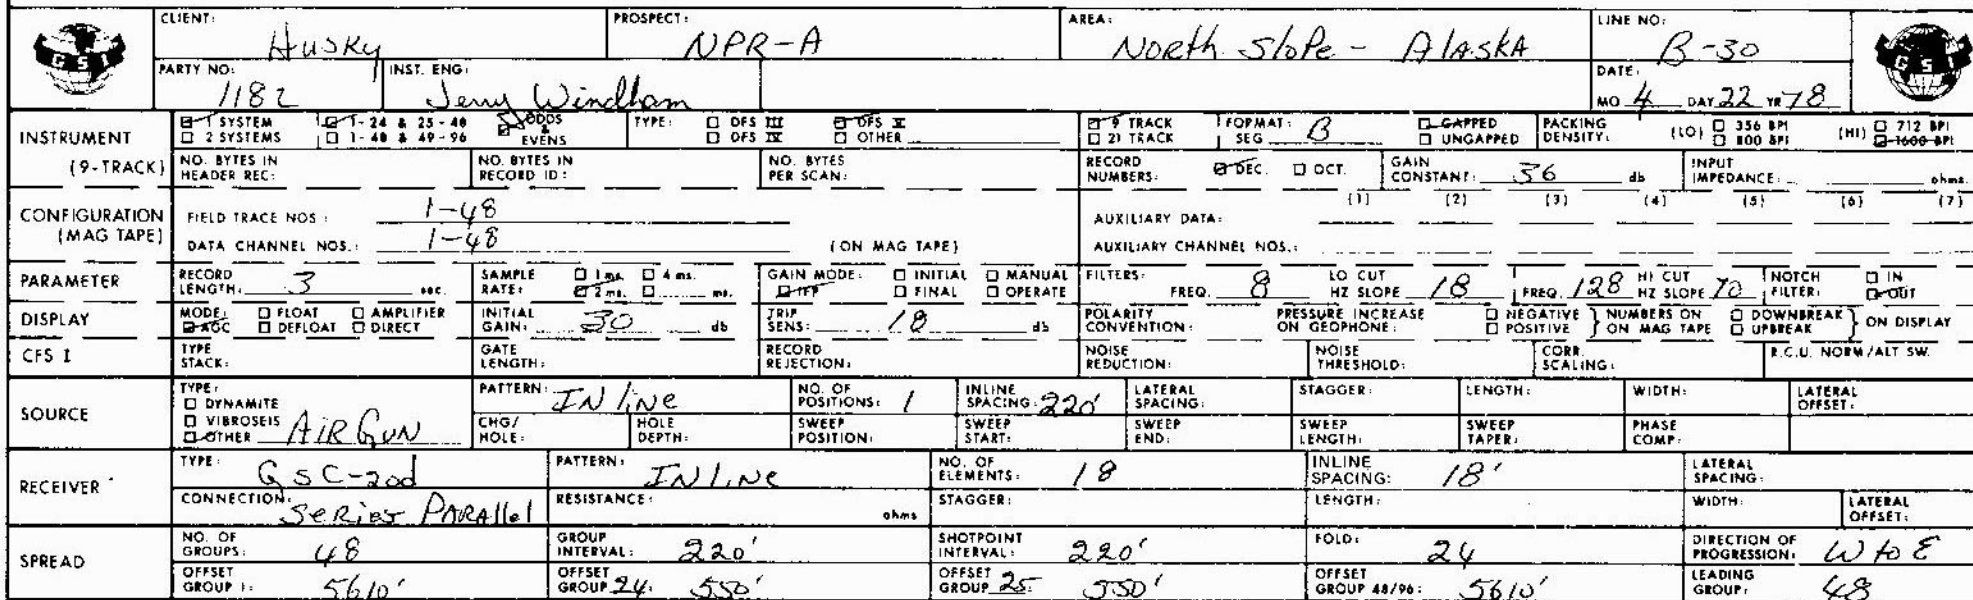 CLIENT: Husky PROSPECT: NPR-A AREA: North Slope - Alaska LINE NO: B-30
GSI GSI
PARTY NO: 1182 INST. ENG: Jerry Windham DATE: MO 4 DAY 22 YR 78
INSTRUMENT (9-TRACK) 1 SYSTEM 1-24 & 25-48 ODDS & EVENS TYPE: DFS III DFS V 9 TRACK FORMAT: SEG B GAPPED PACKING DENSITY: (LO) 356 BPI (HI) 712 BPI
2 SYSTEMS 1-48 & 49-96 DFS IV OTHER 21 TRACK UNGAPPED 800 BPI 1600 BPI
NO. BYTES IN HEADER REC: NO. BYTES IN RECORD ID: NO. BYTES PER SCAN: RECORD NUMBERS: DEC. OCT. GAIN CONSTANT: 36 db INPUT IMPEDANCE: ohms.
CONFIGURATION (MAG TAPE) FIELD TRACE NOS: 1-48 AUXILIARY DATA: (1) (2) (3) (4) (5) (6) (7)
DATA CHANNEL NOS.: 1-48 (ON MAG TAPE) AUXILIARY CHANNEL NOS.:
PARAMETER RECORD LENGTH: 3 sec. SAMPLE RATE: 1 ms. 4 ms. 2 ms. ms. GAIN MODE: INITIAL MANUAL IFP FINAL OPERATE FILTERS: FREQ. 8 LO CUT HZ SLOPE 18 FREQ. 128 HI CUT HZ SLOPE 70 NOTCH FILTER: IN OUT
DISPLAY MODE: FLOAT AMPLIFIER AGC DEFLOAT DIRECT INITIAL GAIN: 30 db TRIP SENS: 18 db POLARITY CONVENTION: PRESSURE INCREASE ON GEOPHONE: NEGATIVE POSITIVE } NUMBERS ON ON MAG TAPE DOWNBREAK UPBREAK } ON DISPLAY
CFS I TYPE STACK: GATE LENGTH: RECORD REJECTION: NOISE REDUCTION: NOISE THRESHOLD: CORR. SCALING: R.C.U. NORM/ALT SW.
SOURCE TYPE: DYNAMITE VIBROSEIS OTHER AIR GUN PATTERN: IN line NO. OF POSITIONS: 1 INLINE SPACING: 220' LATERAL SPACING: STAGGER: LENGTH: WIDTH: LATERAL OFFSET:
CHG/HOLE: HOLE DEPTH: SWEEP POSITION: SWEEP START: SWEEP END: SWEEP LENGTH: SWEEP TAPER: PHASE COMP:
RECEIVER TYPE: GSC-20d PATTERN: INLINe NO. OF ELEMENTS: 18 INLINE SPACING: 18' LATERAL SPACING:
CONNECTION: Series PARAllel RESISTANCE: ohms STAGGER: LENGTH: WIDTH: LATERAL OFFSET:
SPREAD NO. OF GROUPS: 48 GROUP INTERVAL: 220' SHOTPOINT INTERVAL: 220' FOLD: 24 DIRECTION OF PROGRESSION: W to E
OFFSET GROUP 1: 5610' OFFSET GROUP 24: 550' OFFSET GROUP 25: 550' OFFSET GROUP 48/96: 5610' LEADING GROUP: 48